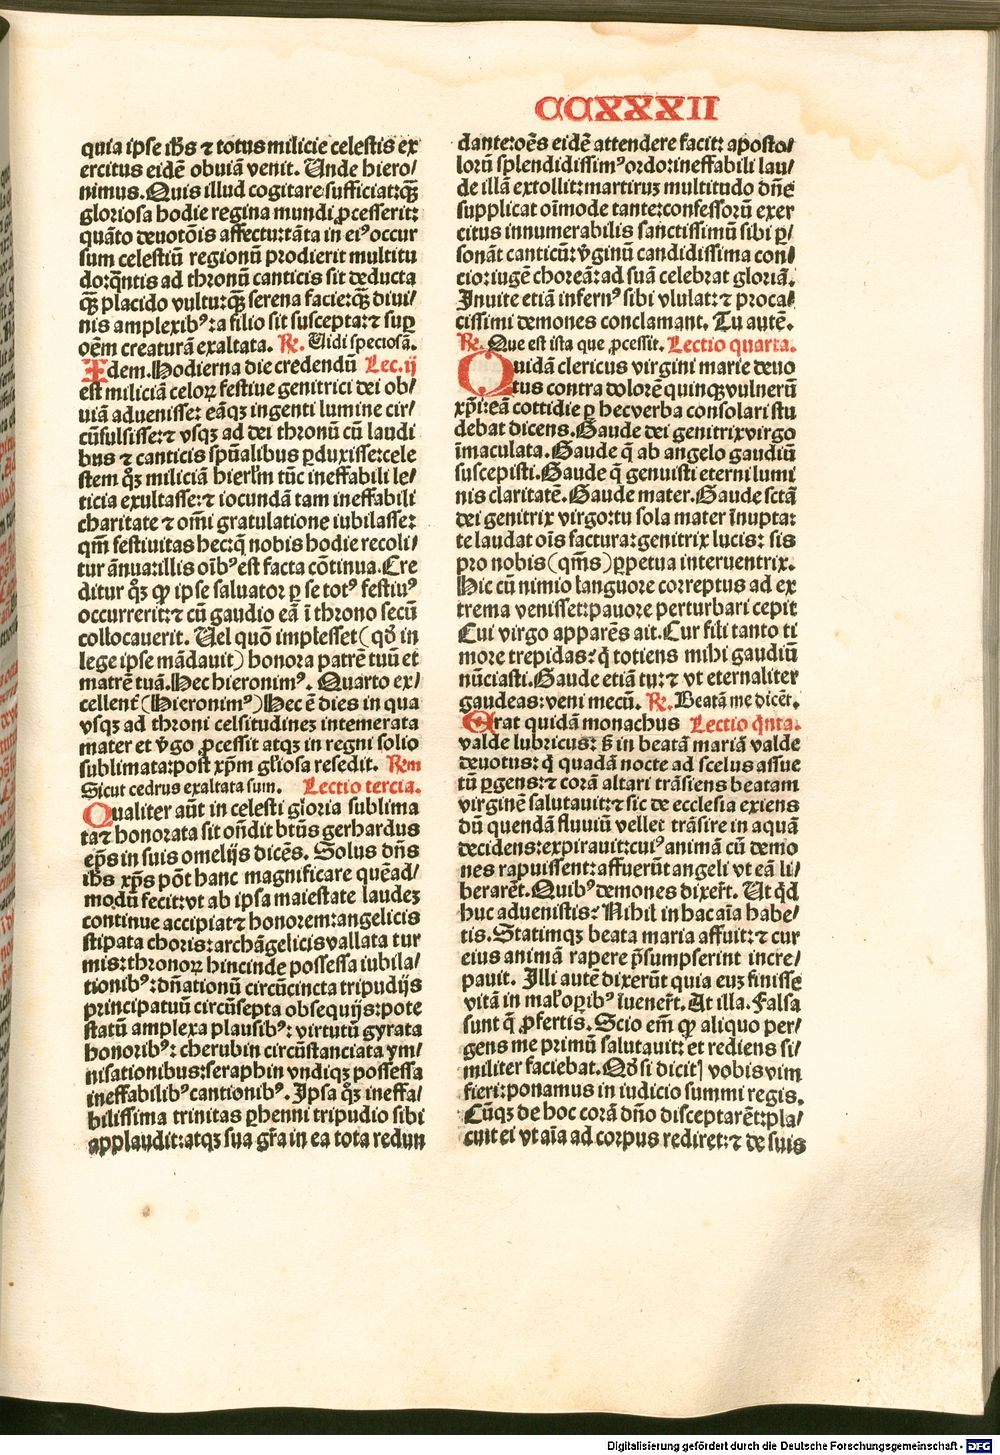 CCXXXII
quia ipse ihs̄ ⁊ totus milicie celestis ex
ercitus eidē obuiā venit. Unde hiero/
nimus. Quis illud cogitare sufficiat: qꝫ
gloriosa hodie regina mundi ꝓcesserit:
quāto deuotōis affectu: tāta in eiꝰ occur
sum celestiū regionū prodierit multitu
do: qn̄tis ad thronū canticis sit deducta
qꝫ placido vultu: qꝫ serena facie: qꝫ diui/
nis amplexibꝰ: a filio sit suscepta: ⁊ suꝑ
oēm creaturā exaltata. ℞. Vidi speciosā.
Idem. Hodierna die credendū Lec. ij
est miliciā celoꝝ festiue genitrici dei ob/
uiā aduenisse: eāqꝫ ingenti lumine cir/
cūfulsisse: ⁊ vsqꝫ ad dei thronū cū laudi
bus ⁊ canticis spūalibus ꝑduxisse: cele
stem qꝫ miliciā hierlm̄ tūc ineffabili le/
ticia exultasse: ⁊ iocundā tam ineffabili
charitate ⁊ om̄i gratulatione iubilasse:
qm̄ festiuitas hec: q̄ nobis hodie recoli/
tur ānua: illis oībꝰ est facta cōtinua. Cre
ditur qꝫ ꝙ ipse saluator ꝑ se totꝰ festiuꝰ
occurrerit: ⁊ cū gaudio eā ī throno secū
collocauerit. Uel quō implesset (qđ in
lege ipse mādauit) honora patrē tuū et
matrē tuā. Hec hieronimꝰ. Quarto ex/
cellent̄ (Hieronimꝰ) Hec ē dies in qua
vsqꝫ ad throni celsitudineꝫ intemerata
mater et v̄go ꝓcessit atqꝫ in regni solio
sublimata: post xp̄m gl̄iosa resedit. ℞m
Sicut cedrus exaltata sum. Lectio tercia.
Qualiter aūt in celesti gloria sublima
ta ⁊ honorata sit on̄dit btūs gerhardus
ep̄s in suis omelijs dicēs. Solus dn̄s
ihs̄ xp̄s pōt hanc magnificare quēad/
modū fecit: vt ab ipsa maiestate laudeꝫ
continue accipiat ⁊ honorem: angelicis
stipata choris: archāgelicis vallata tur
mis: thronoꝝ hincinde possessa iubila/
tionibꝰ: dn̄ationū circūcincta tripudijs
principatuū circūsepta obsequijs: pote
statū amplexa plausibꝰ: virtutū gyrata
honoribꝰ: cherubin circūstanciata ym/
nisationibus: seraphin vndiqꝫ possessa
ineffabilibꝰ cantionibꝰ. Ipsa qꝫ ineffa/
bilissima trinitas ꝑhenni tripudio sibi
applaudit: atqꝫ sua gr̄a in ea tota redun
dante: oēs eidē attendere facit: aposto/
lorū splendidissimꝰ ordo: ineffabili lau/
de illā extollit: martiruꝫ multitudo dn̄e
supplicat oīmode tante: confessorū exer
citus innumerabilis sanctissimū sibi ꝑ/
sonāt canticū: v̄ginū candidissima con/
cio: iugē choreā: ad suā celebrat gloriā.
Inuite etiā infernꝰ sibi vlulat: ⁊ proca/
cissimi demones conclamant. Tu autē.
℞. Que est ista que ꝓcessit. Lectio quarta.
Quidā clericus virgini marie deuo
tus contra dolorē quinqꝫ vulnerū
xp̄i: eā cottidie ꝑ hec verba consolari stu
debat dicens. Gaude dei genitrix virgo
īmaculata. Gaude q̄ ab angelo gaudiū
suscepisti. Gaude q̄ genuisti eterni lumi
nis claritatē. Gaude mater. Gaude sctā
dei genitrix virgo: tu sola mater īnupta:
te laudat oīs factura: genitrix lucis: sis
pro nobis (qm̄s) ꝑpetua interuentrix.
Hic cū nimio languore correptus ad ex
trema venisset: pauore perturbari cepit
Cui virgo apparēs ait. Cur fili tanto ti
more trepidas: q̄ totiens mihi gaudiū
nūciasti. Gaude etiā tu: ⁊ vt eternaliter
gaudeas: veni mecū. ℞. Beatā me dicēt.
Erat quidā monachus Lectio qn̄ta.
valde lubricus: s̄ in beatā mariā valde
deuotus: q̄ quadā nocte ad scelus assue
tū ꝑgens: ⁊ corā altari trāsiens beatam
virginē salutauit: ⁊ sic de ecclesia exiens
dū quendā fluuiū vellet trāsire in aquā
decidens: expirauit: cuiꝰ animā cū demo
nes rapuissent: affuerūt angeli vt eā li/
berarēt. Quibꝰ demones dixer̄t. Ut qd̄
huc aduenistis? Nihil in hac aīa habe/
tis. Statimqꝫ beata maria affuit: ⁊ cur
eius animā rapere p̄sumpserint incre/
pauit. Illi autē dixerūt quia euꝫ finisse
vitā in mal̄ oꝑibꝰ īuener̄t. At illa. Falsa
sunt q̄ ꝓfertis. Scio em̄ ꝙ aliquo per/
gens me primū salutauit: et rediens si/
militer faciebat. Qđ si dicit̉ vobis vim
fieri: ponamus in iudicio summi regis.
Cūqꝫ de hoc corā dn̄o disceptarēt: pla/
cuit ei vt aīa ad corpus rediret: ⁊ de suis
Digitalisierung gefördert durch die Deutsche Forschungsgemeinschaft - DFG